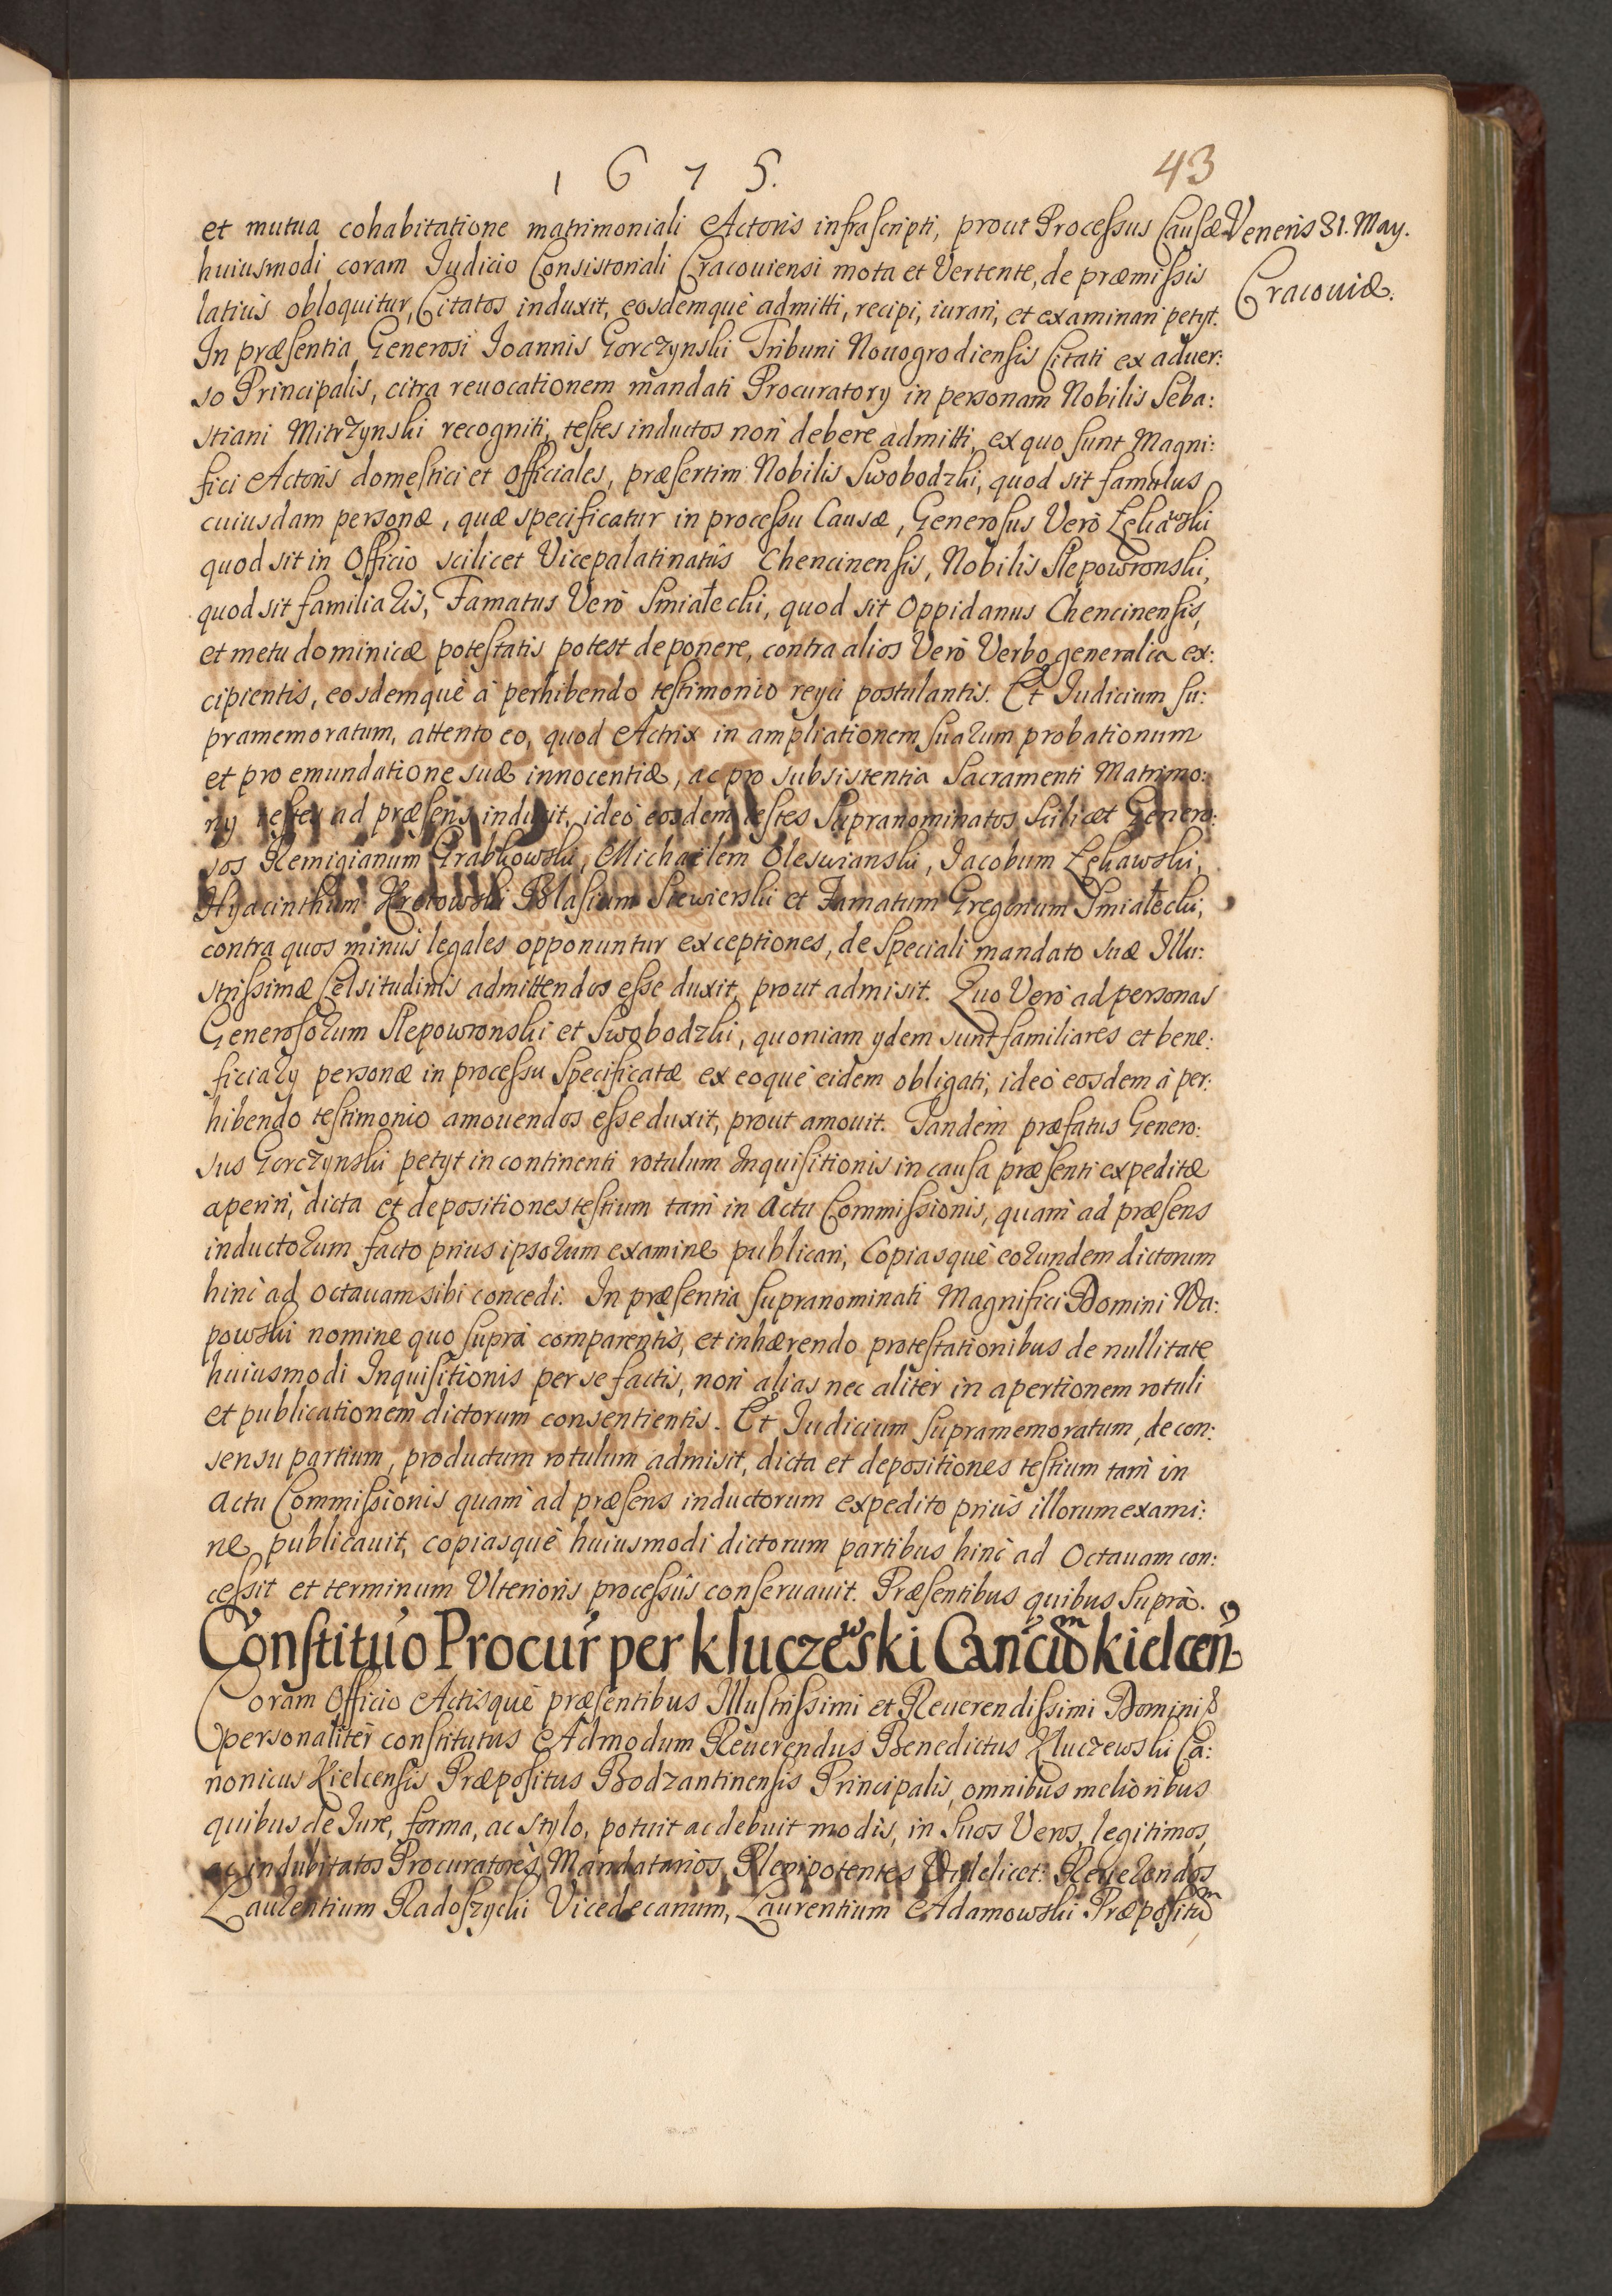 1675.
43
et mutua cohabitatione matrimoniali Actoris infrascripti, prout Processus Causæ
Veneris 31. May.
Cracouiæ.
huiusmodi coram Judicio Consistoriali Cracouiensi mota et Vertente, de præmissis
latius obloquitur, Citatos induxit, eosdemquè admitti, recipi, iurari, et examinari petyt.
In præsentia Generosi Ioannis Gorczynski Tribuni Nouogrodiensis Citati ex aduer:
so Principalis, citra reuocationem mandati Procuratory in personam Nobilis Seba:
stiani Mitrzynski recogniti, testes inductos non debere admitti, ex quo sunt Magni:
fici Actoris domestici et Officiales, præsertim Nobilis Swobodzki, quod sit famulus
cuiusdam personæ, quæ specificatur in processu Causæ, Generosus Verò Zekawski
quod sit in Officio scilicet Vicepalatinatûs Chencinensis, Nobilis Slepowronski,
quod sit familiaris, Famatus Verò Smiałecki, quod sit Oppidanus Chencinensis,
et metu dominicæ potestatis potest deponere, contra alios Verò Verbo generalia ex:
cipientis, eosdemquè à perhibendo testimonio reyci postulantis. Et Judicium su:
pramemoratum, attento eo, quod Actrix in ampliationem suarum probationum
et pro emundatione suæ innocentiæ, ac pro subsistentia Sacramenti Matrimo:
ny testes ad præsens induxit, ideò eosdem testes Supranominatos scilicet Genero:
sos Remigianum Grabkowski, Michaelem Oleswianski, Jacobum Zekawski,
Hyacinthum Krotowski Blasium Siewierski et Famatum Gregorium Smiałecki,
contra quos minus legales opponuntur exceptiones, de speciali mandato suæ Illu:
strissimæ Celsitudinis admittendos esse duxit, prout admisit. Quo Verò ad personas
Generosorum Slepowronski et Swobodzki, quoniam ydem sunt familiares et bene:
ficiary personæ in processu Specificatæ ex eoquè eidem obligati, ideò eosdem à per:
hibendo testimonio amouendos esse duxit, prout amouit. Tandem præfatus Genero:
sus Gorczynski petyt in continenti rotulum Inquisitionis in causa præsenti expeditæ
aperiri, dicta et depositiones testium tam in Actu Commissionis, quam ad præsens
inductorum facto prius ipsorum examine publicari, Copiasquè eorundem dictorum
hinc ad Octauam sibi concedi. In præsentia supranominati Magnifici Domini Wa:
powski nomine quo suprà comparentis, et inhærendo protestationibus de nullitate
huiusmodi Inquisitionis per se factis, non alias nec aliter in apertionem rotuli
et publicationem dictorum consentientis. Et Judicium supramemoratum, de con:
sensu partium, productum rotulum admisit, dicta et depositiones testium tam in
Actu Commissionis quam ad præsens inductorum expedito prius illorum exami:
ne publicauit, copiasquè huiusmodi dictorum partibus hinc ad Octauam con:
cessit et terminum Vlterioris processûs conseruauit. Præsentibus quibus suprà.
Constituo Procur per Kluczewski Cancium Kielcen.
Coram Officio Actisquè præsentibus Illustrissimi et Reuerendissimi Domini &
personaliter constitutus Admodum Reuerendus Benedictus Kluczewski Ca:
nonicus Kielcensis Præpositus Bodzantinensis Principalis, omnibus melioribus
quibus de Jure, forma, ac stylo, potuit ac debuit modis, in suos Veros, legitimos,
ac indubitatos Procuratores, Mandatarios, Plenipotentes Videlicet: Reuerendos
Laurentium Radoszycki Vicedecanum, Laurentium Adamowski Præpositum